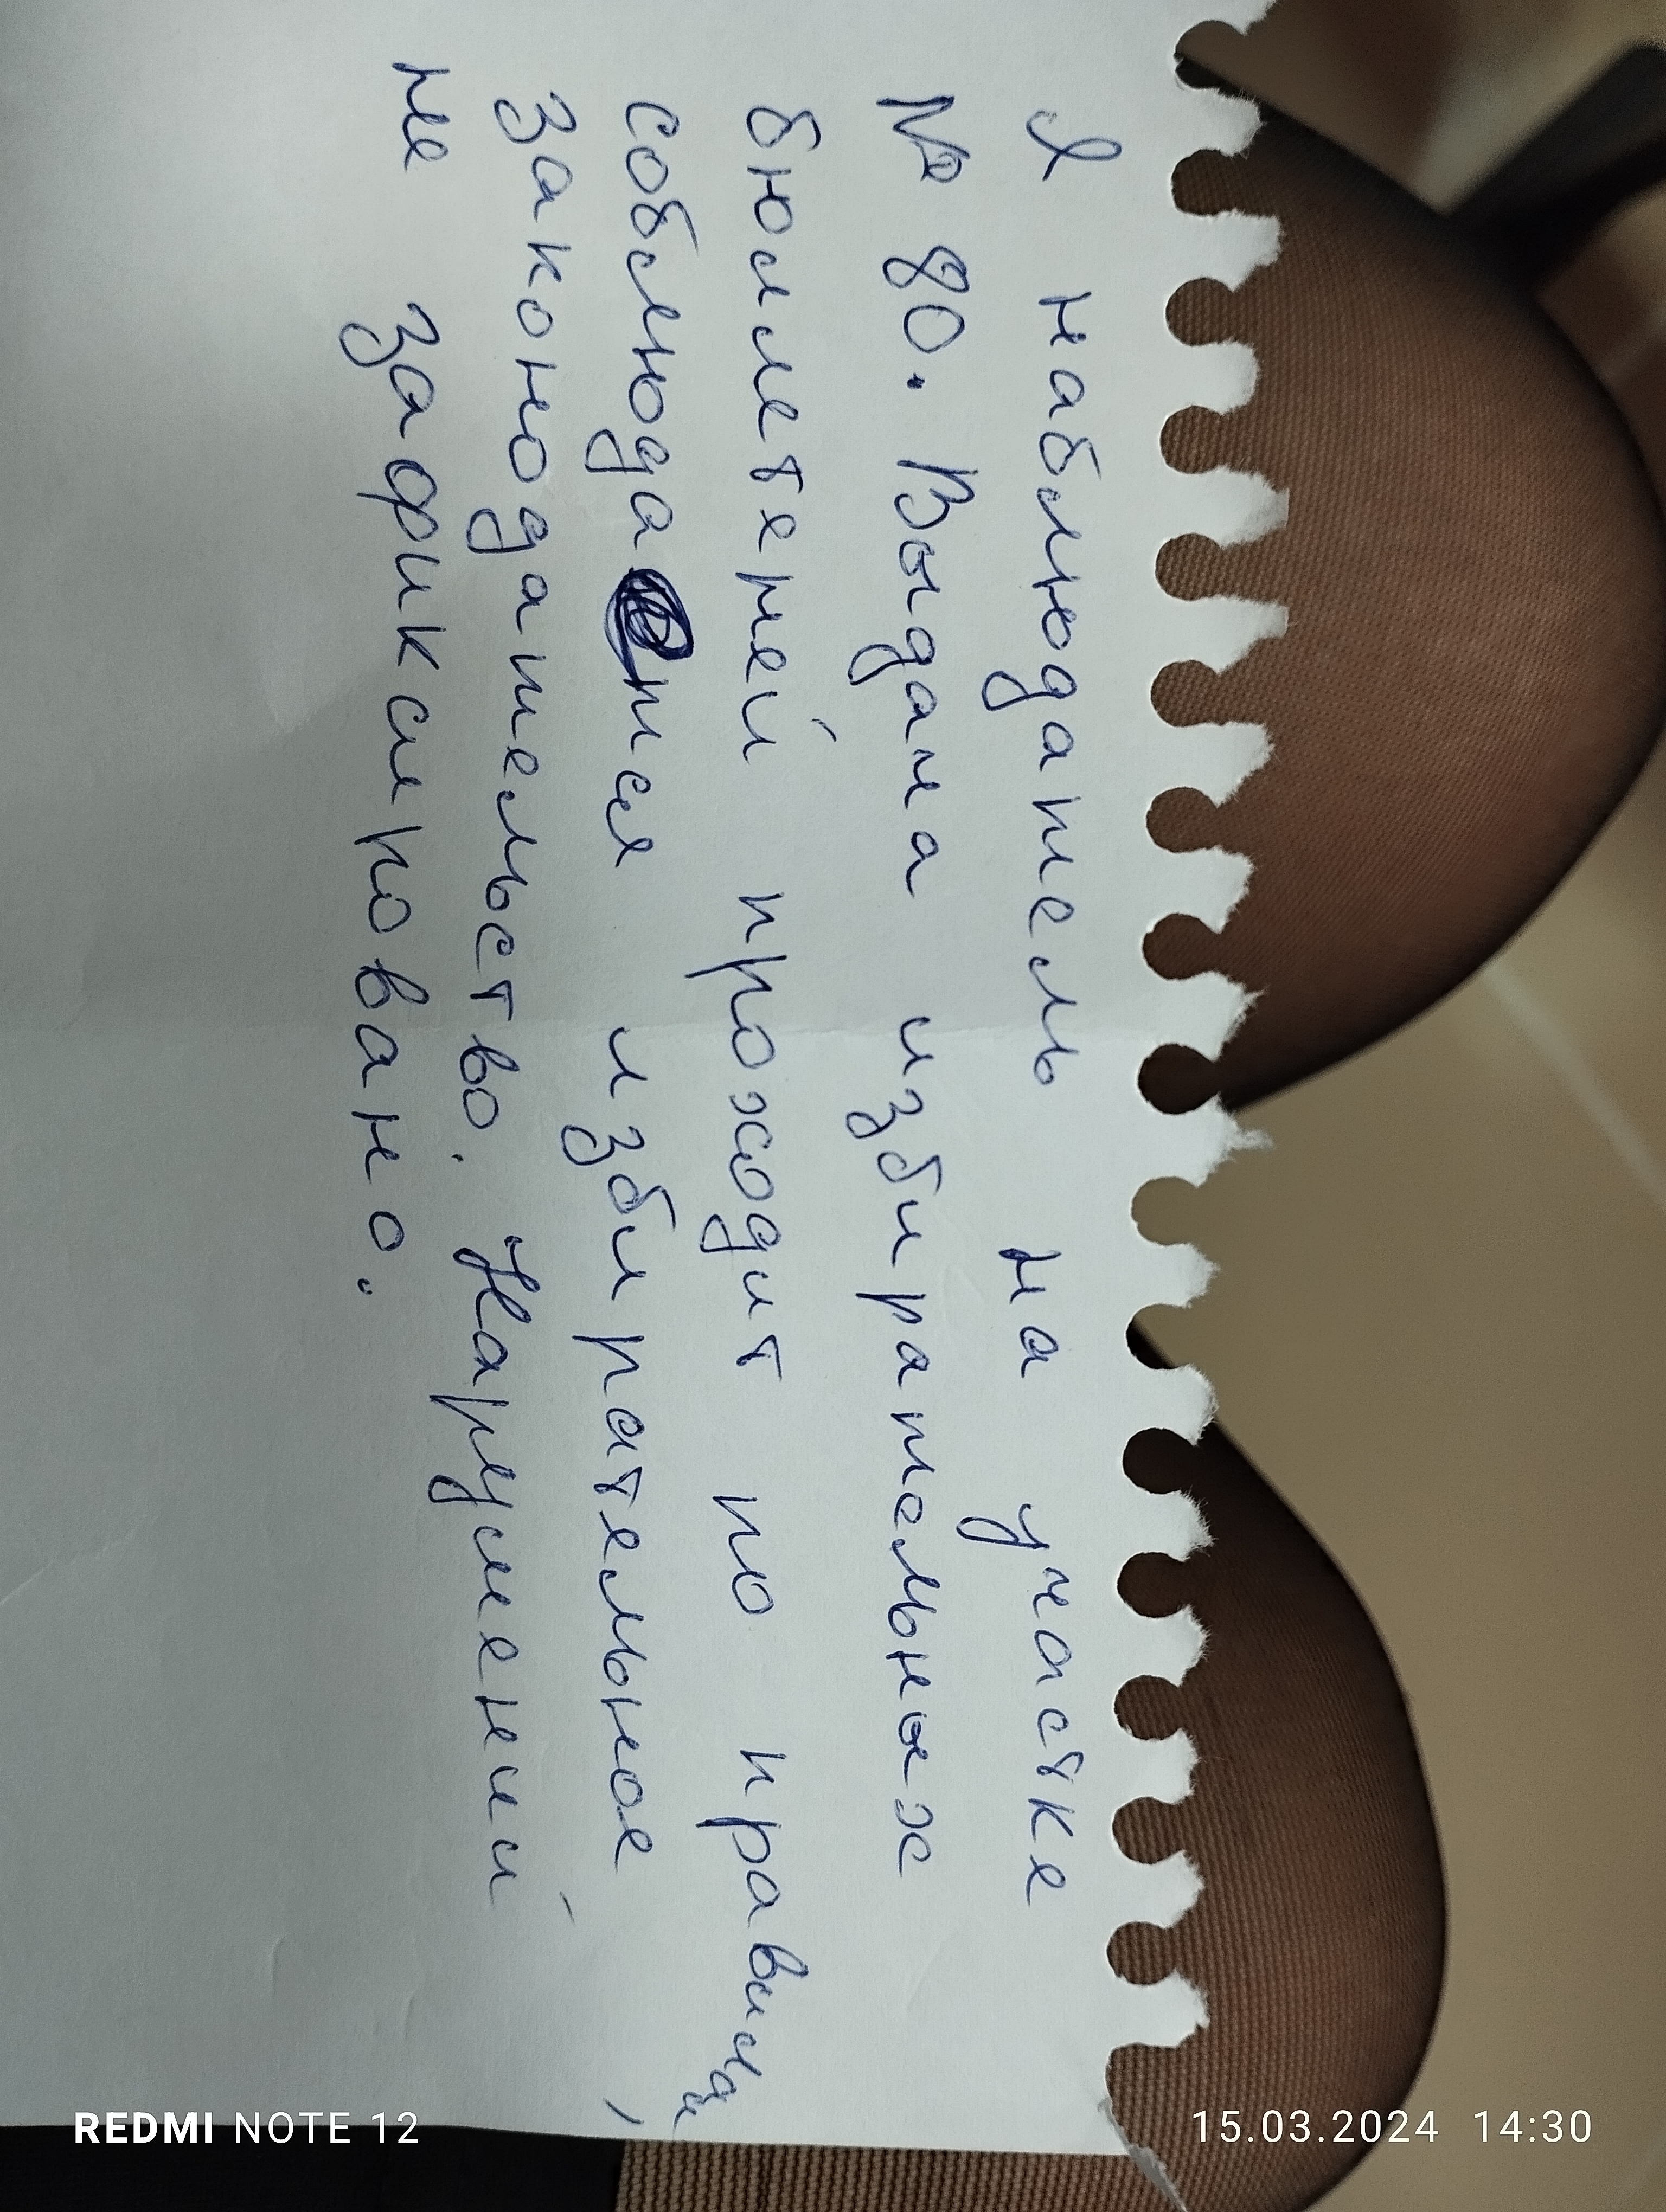 Я наблюдатель на участке
№ 80. Выдача избирательных
бюллетеней проходит по правилам,
соблюдается избирательное
законодательство. Нарушений
не зафиксировано.
REDMI NOTE 12
15.03.2024 14:30